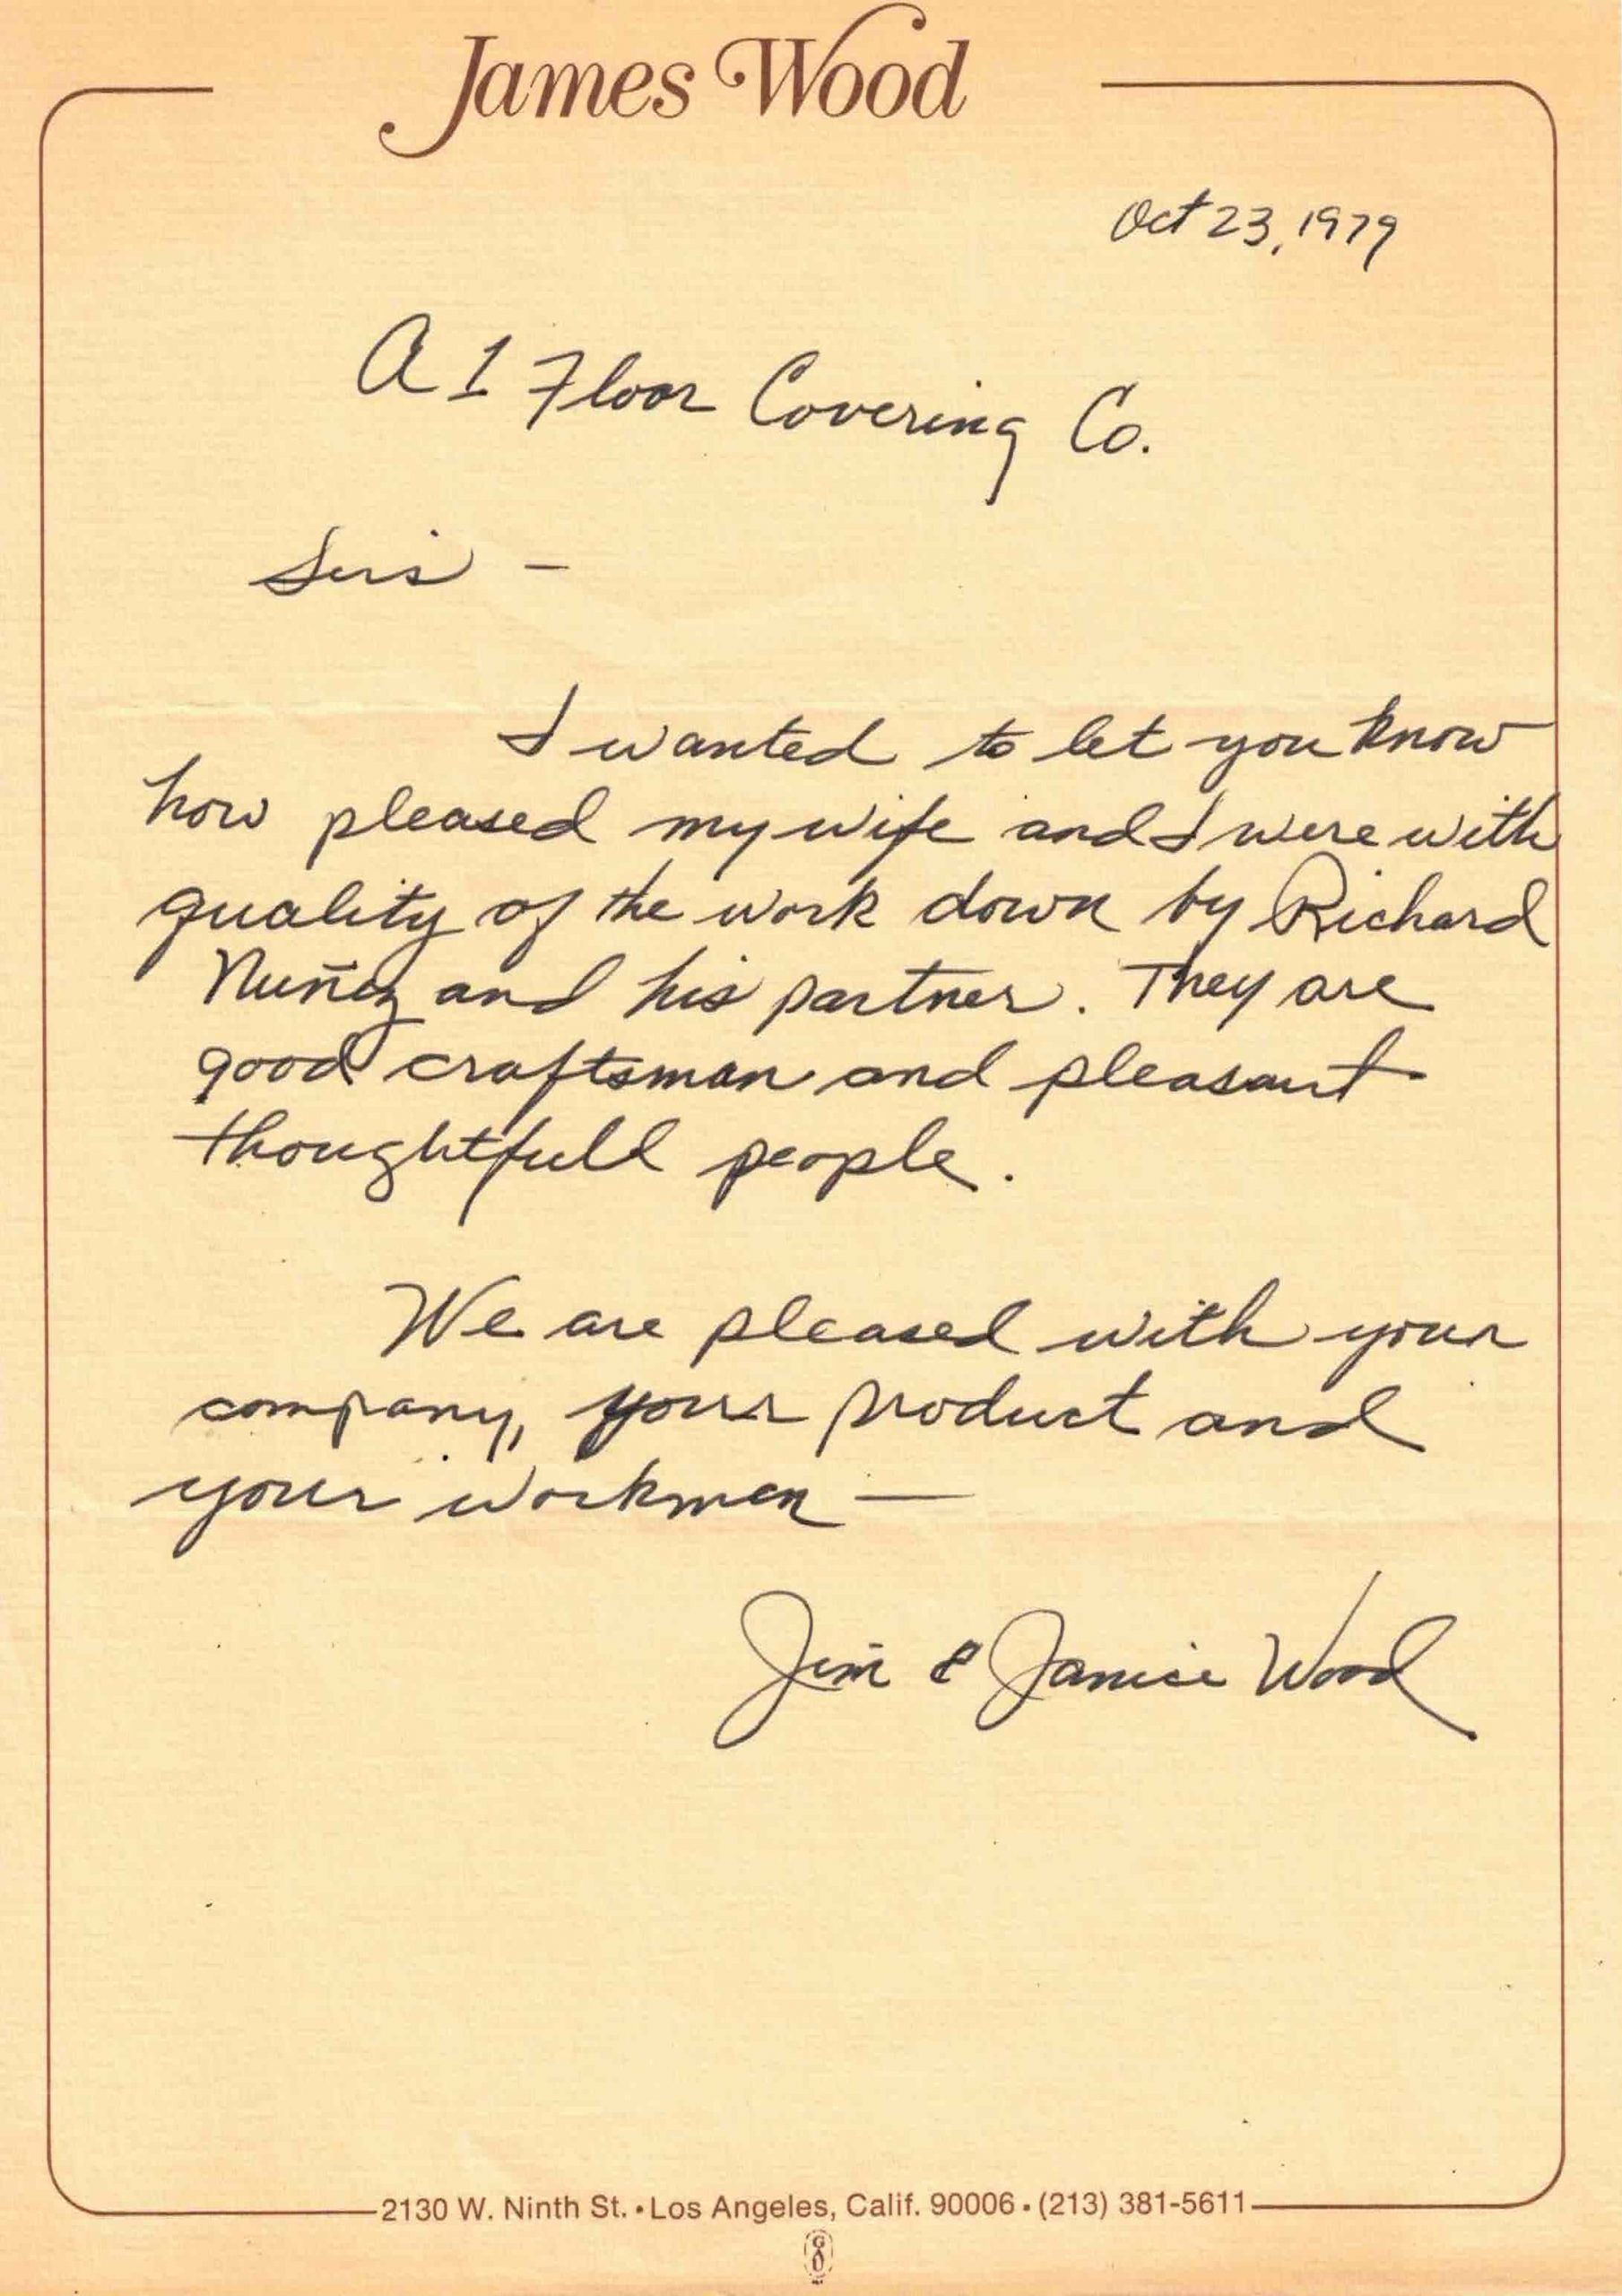 James Wood
Oct 23, 1979
A 1 Floor Covering Co.
Sirs -
I wanted to let you know
how pleased my wife and I were with
quality of the work down by Richard
Nuñez and his partner. They are
good craftsman and pleasant
thoughtfull people.
We are pleased with your
company, your product and
your workmen —
Jim & Janice Wood
2130 W. Ninth St. • Los Angeles, Calif. 90006 • (213) 381-5611